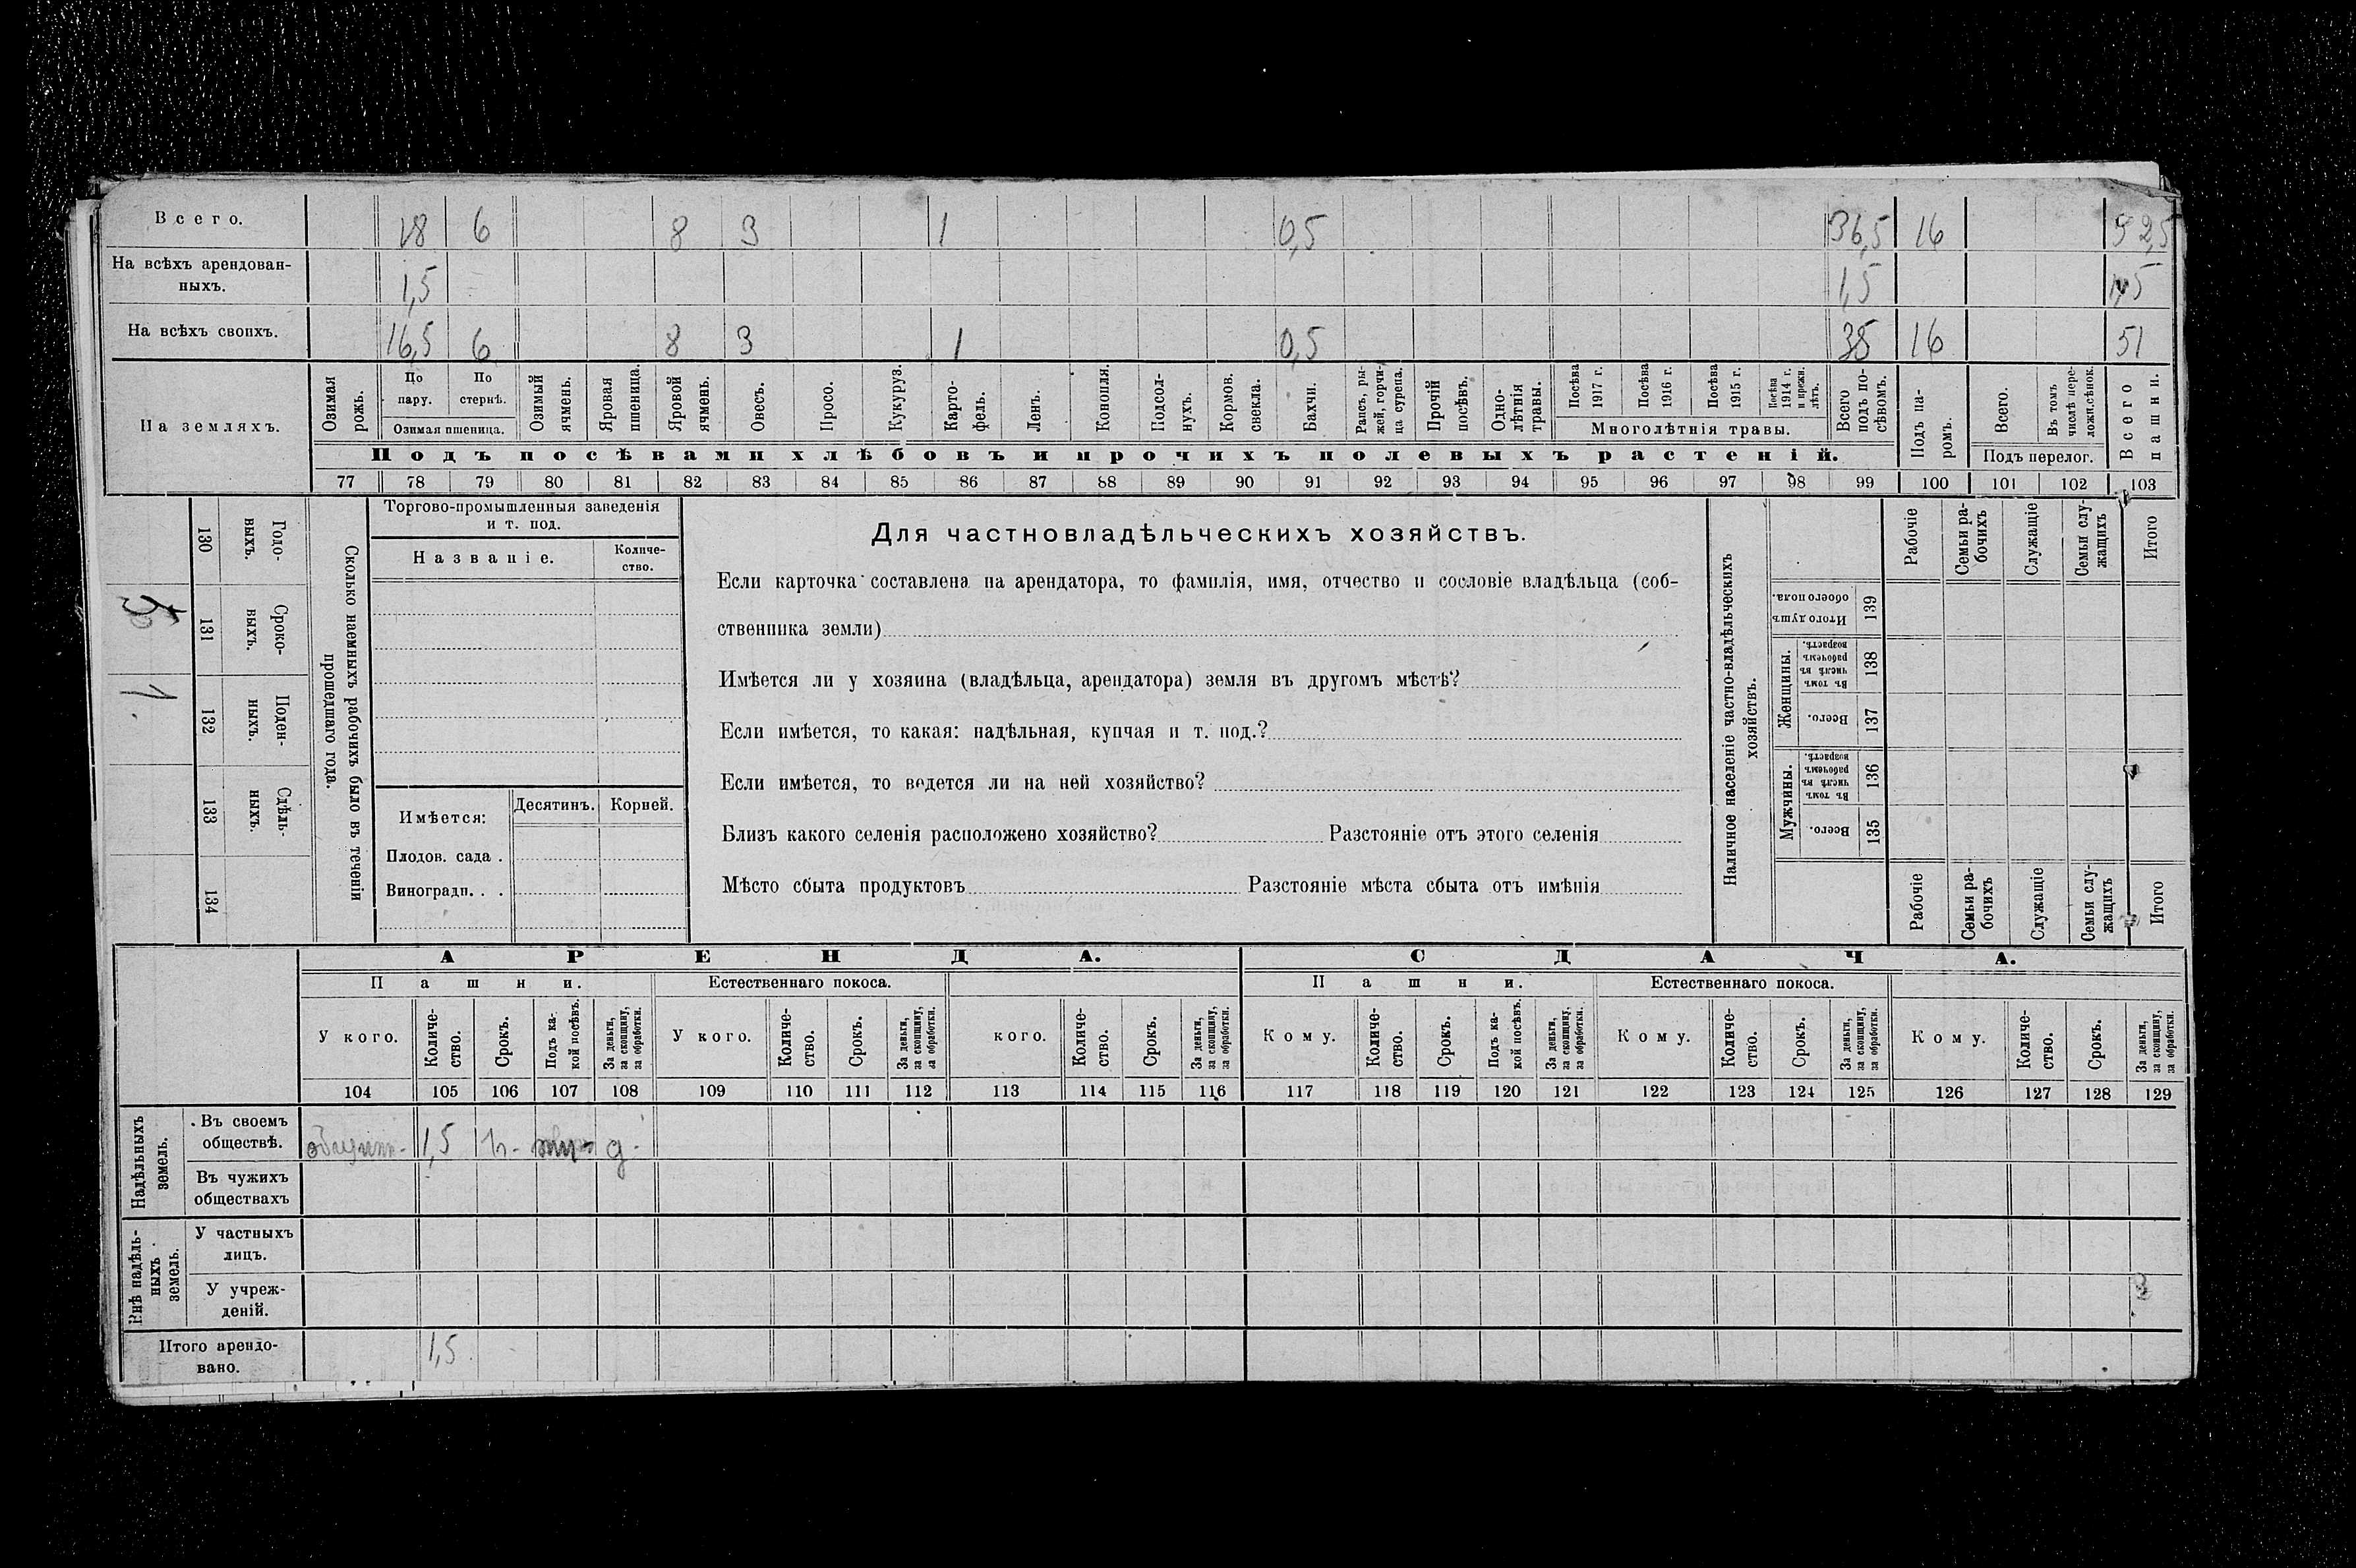 Всего. 18 6 8 3 1 0,5 36,5 16 52,5
На всѣхъ арендован-
ныхъ. 1,5 1,5 1,5
На всѣхъ своихъ. 16,5 6 8 3 1 0,5 35 16 51
На земляхъ.
Озимая рожь.
По пару.
По стернѣ.
Озимая пшеница.
Озимый ячмень.
Яровая пшеница.
Яровой ячмень.
Овесъ.
Просо.
Кукуруз.
Карто-
фель.
Ленъ.
Конопля.
Подсол-
нухъ.
Кормов. свекла.
Бахчи.
Рапсъ, ры-
жей, горчи-
ца сурепа.
Прочій посѣвъ.
Одно-
лѣтнія травы.
Посѣва 1917 г.
Посѣва 1916 г.
Посѣва 1915 г.
Посѣва 1914 г. и прежн. лѣтъ.
Многолѣтнія травы.
Всего подъ по-
сѣвомъ.
Подъ па-
ромъ.
Всего.
Въ томъ числѣ пере-
ложн.сѣнок.
Подъ перелог.
Всего пашни.
Подъ посѣвами хлѣбовъ и прочихъ полевыхъ растеній.
77 78 79 80 81 82 83 84 85 86 87 88 89 90 91 92 93 94 95 96 97 98 99 100 101 102 103
Сколько наемныхъ рабочихъ было въ теченіи
прошедшаго года.
Годо-
выхъ.
130
Сроко-
выхъ.
131
Поден-
ныхъ.
132
1
Сдѣль-
ныхъ.
133
134
Торгово-промышленныя заведенія
и т. под.
Названіе.
Количе-
ство.
Имѣется:
Десятинъ.
Корней.
Плодов. сада .
Виноградн. . .
Для частновладѣльческихъ хозяйствъ.
Если карточка составлена на арендатора, то фамилія, имя, отчество и сословіе владѣльца (соб-
ственника земли)
Имѣется ли у хозяина (владѣльца, арендатора) земля въ другомъ мѣстѣ?
Если имѣется, то какая: надѣльная, купчая и т. под.?
Если имѣется, то ведется ли на ней хозяйство?
Близъ какого селенія расположено хозяйство? Разстояніе отъ этого селенія
Мѣсто сбыта продуктовъ Разстояніе мѣста сбыта отъ имѣнія
Наличное населеніе частно-владѣльческихъ
хозяйствъ.
Рабочіе
Семьи ра-
бочихъ
Служащіе
Семьи слу-
жащихъ
Итого
Итого душъ
обоего пола.
139
Женщины.
Въ томъ числѣ въ рабочемъ возрастѣ.
138
Всего.
137
Мужчины.
Въ томъ числѣ въ рабочемъ возрастѣ.
136
Всего.
135
Рабочіе
Семьи ра-
бочихъ
Служащіе
Семьи слу-
жащихъ
Итого
АРЕНДА. СДАЧА.
Пашни. Естественнаго покоса. Пашни. Естественнаго покоса.
У кого.
Количе-
ство.
Срокъ.
Подъ ка-
кой посѣвъ.
За деньги,
за скопщину,
за обработки.
У кого.
Количе-
ство.
Срокъ.
За деньги,
за скопщину,
за обработки.
кого.
Количе-
ство.
Срокъ.
За деньги,
за скопщину,
за обработки.
Кому.
Количе-
ство.
Срокъ.
Подъ ка-
кой посѣвъ.
За деньги,
за скопщину,
за обработки.
Кому.
Количе-
ство.
Срокъ.
За деньги,
за скопщину,
за обработки.
Кому.
Количе-
ство.
Срокъ.
За деньги,
за скопщину,
за обработки.
104 105 106 107 108 109 110 111 112 113 114 115 116 117 118 119 120 121 122 123 124 125 126 127 128 129
Надѣльныхъ
земель.
Въ своемъ
обществѣ. 1,5
Въ чужихъ
обществахъ
Внѣ надѣль-
ныхъ
земель.
У частныхъ
лицъ.
У учреж-
деній.
Итого арендо-
вано. 1,5